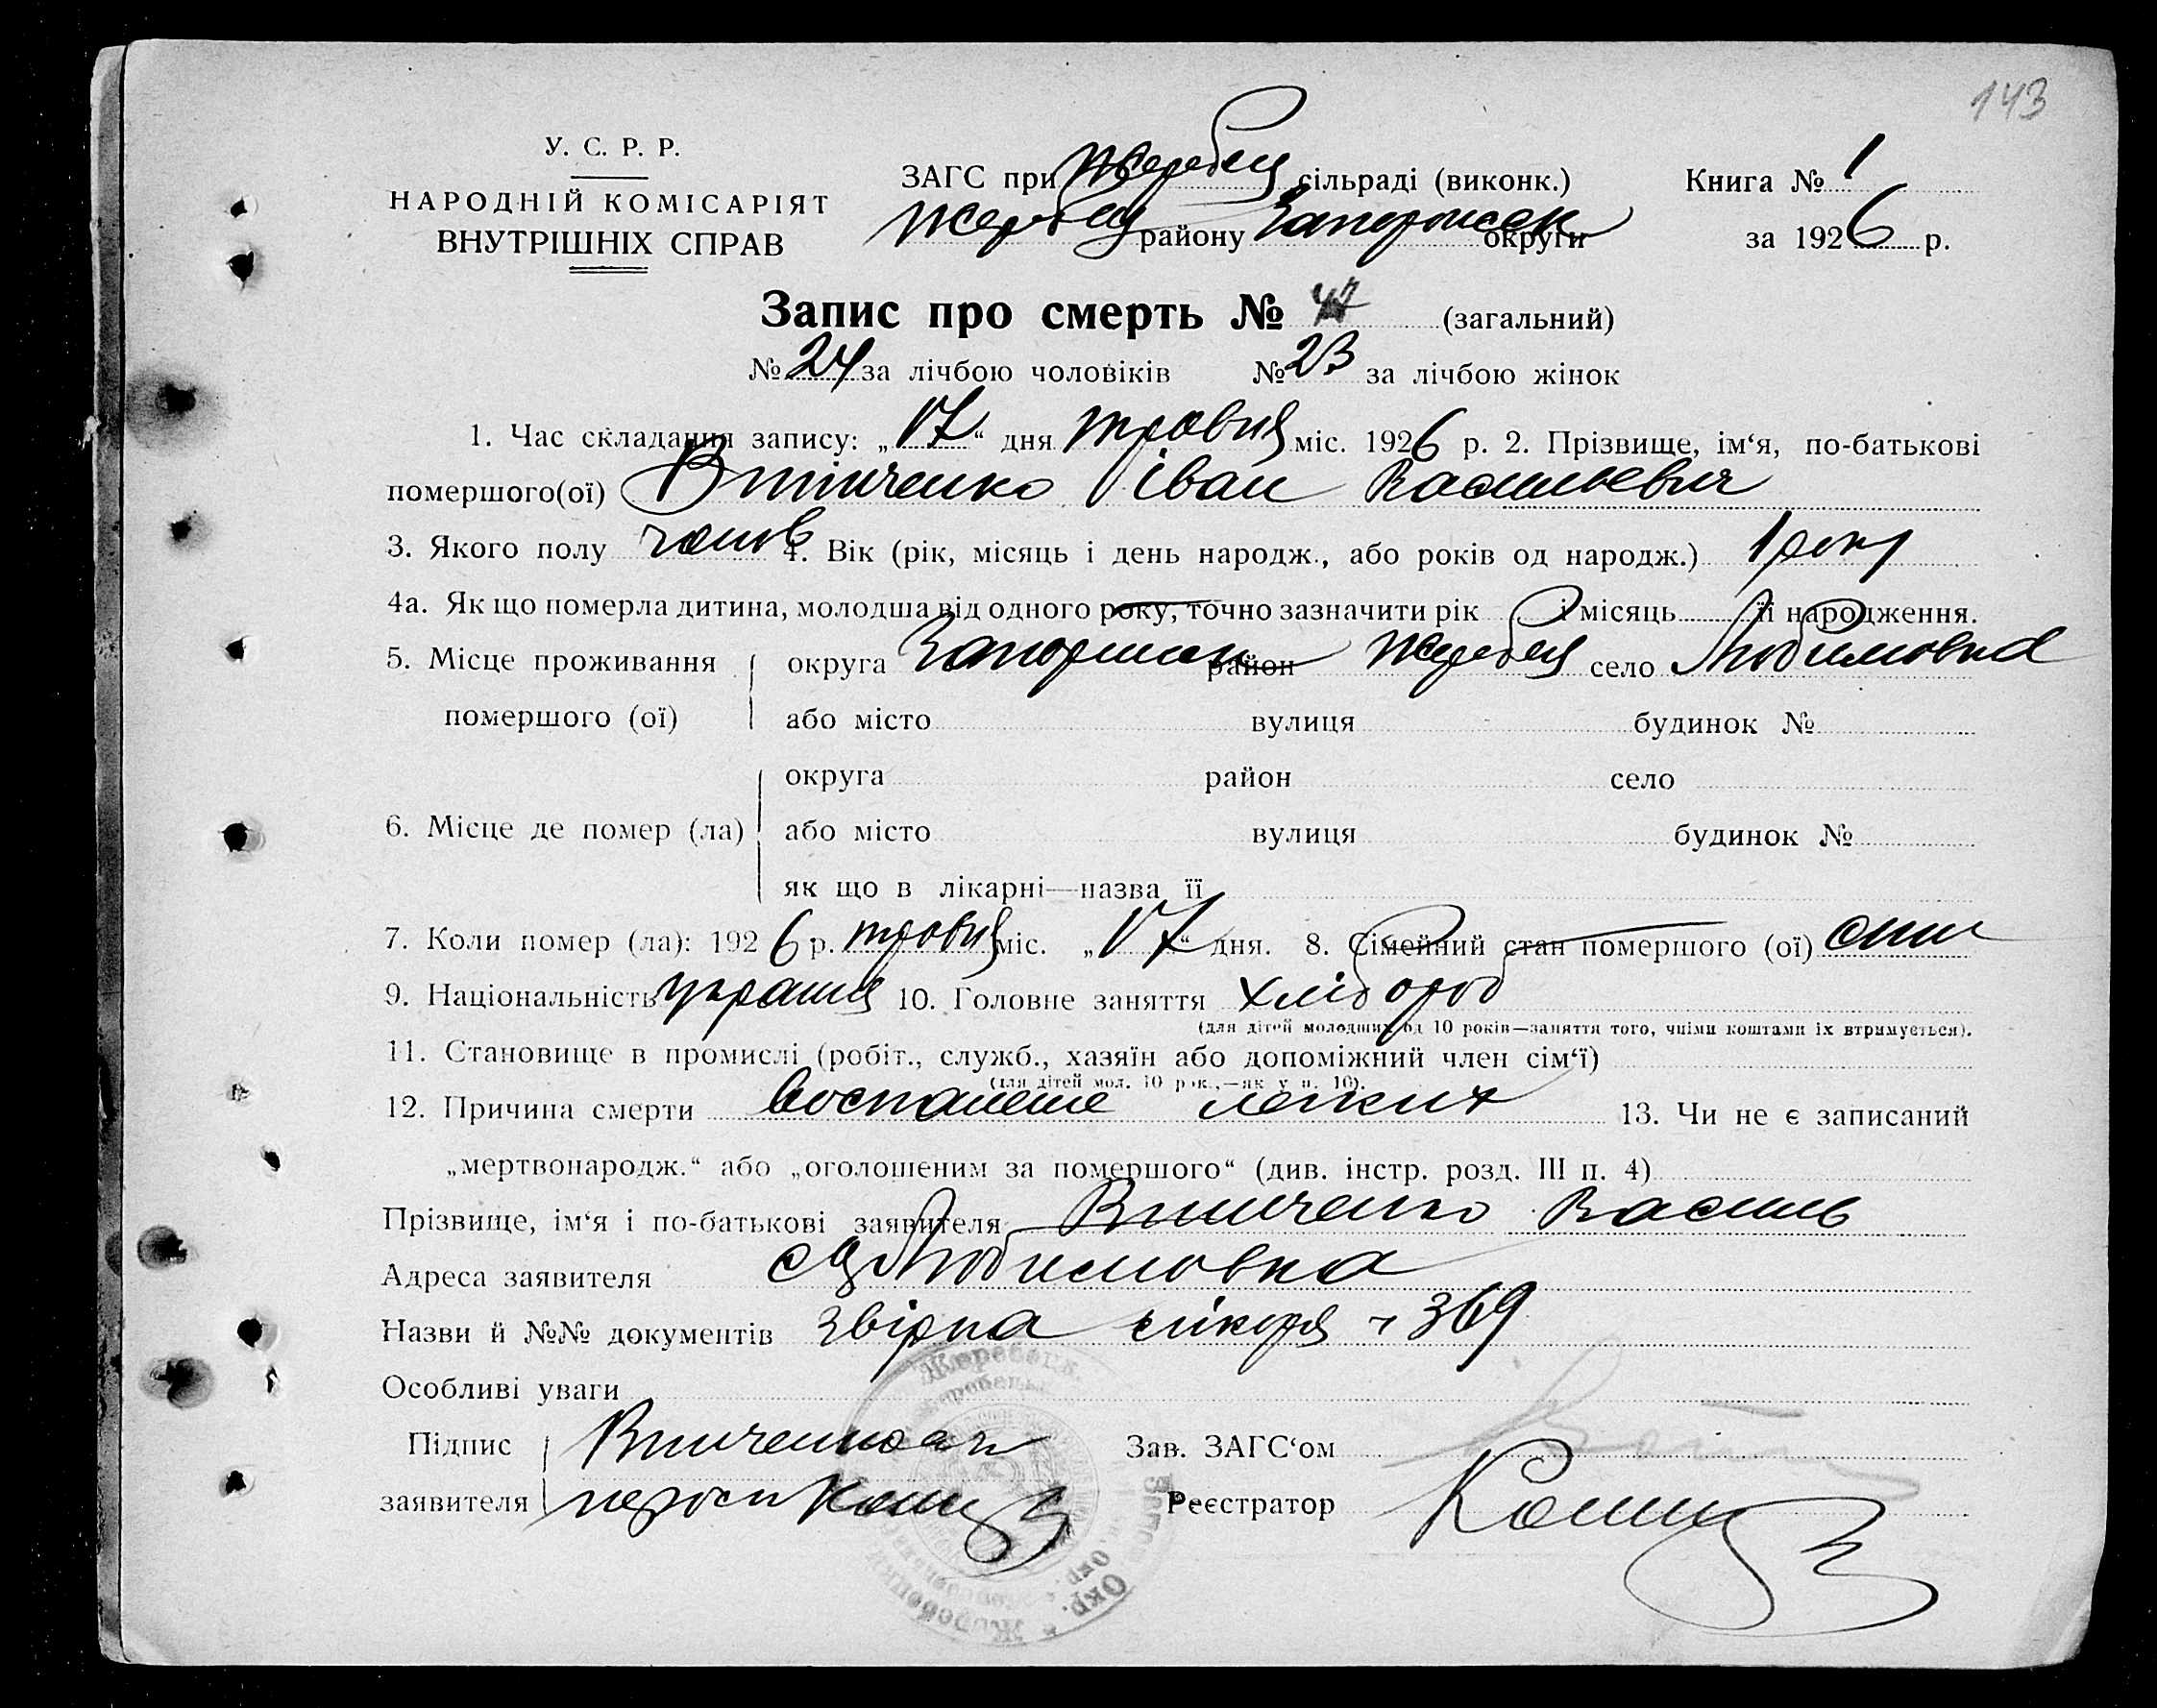 143
У. С. Р. Р.
НАРОДНІЙ КОМІСАРІЯТ
ВНУТРІШНІХ СПРАВ
ЗАГС при Жеребец сільраді (виконк.)
Жеребец району Запорожск округи
Книга № 1
за 1926 р.
Запис про смерть № 47 (загальний)
№ 24 за лічбою чоловіків № 23 за лічбою жінок
1. Час складання запису: „17“ дня травня міс. 1926 р. 2. Прізвище, ім‘я, по-батькові
помершого(ої) Вінниченко Іван Васильевич
3. Якого полу чолов 4. Вік (рік, місяць і день народж., або років од народж.) 1 року
4а. Як що померла дитина, молодша від одного року, точно зазначити рік і місяць її народження.
5. Місце проживання округа Запорожск район Жеребец село Любимовка
помершого (ої) або місто вулиця будинок №
округа район село
6. Місце де помер (ла) або місто вулиця будинок №
як що в лікарні—назва її
7. Коли помер (ла): 1926 р. травня міс. „17“ дня. 8. Сімейний стан помершого (ої)
9. Національність 10. Головне заняття хлібороб
(для дітей молодших од 10 років—заняття того, чиїми коштами їх втримується).
11. Становище в промислі (робіт., служб., хазяїн або допоміжний член сім‘ї)
(для дітей мол. 10 рок.,—як у п. 10).
12. Причина смерти воспаление легких 13. Чи не є записаний
„мертвонародж.“ або „оголошеним за помершого“ (див. інстр. розд. III п. 4)
Прізвище, ім‘я і по-батькові заявителя Винниченко Василь
Адреса заявителя Любимовка
Назви й №№ документів 369
Особливі уваги
Підпис Зав. ЗАГС‘ом
заявителя Реєстратор